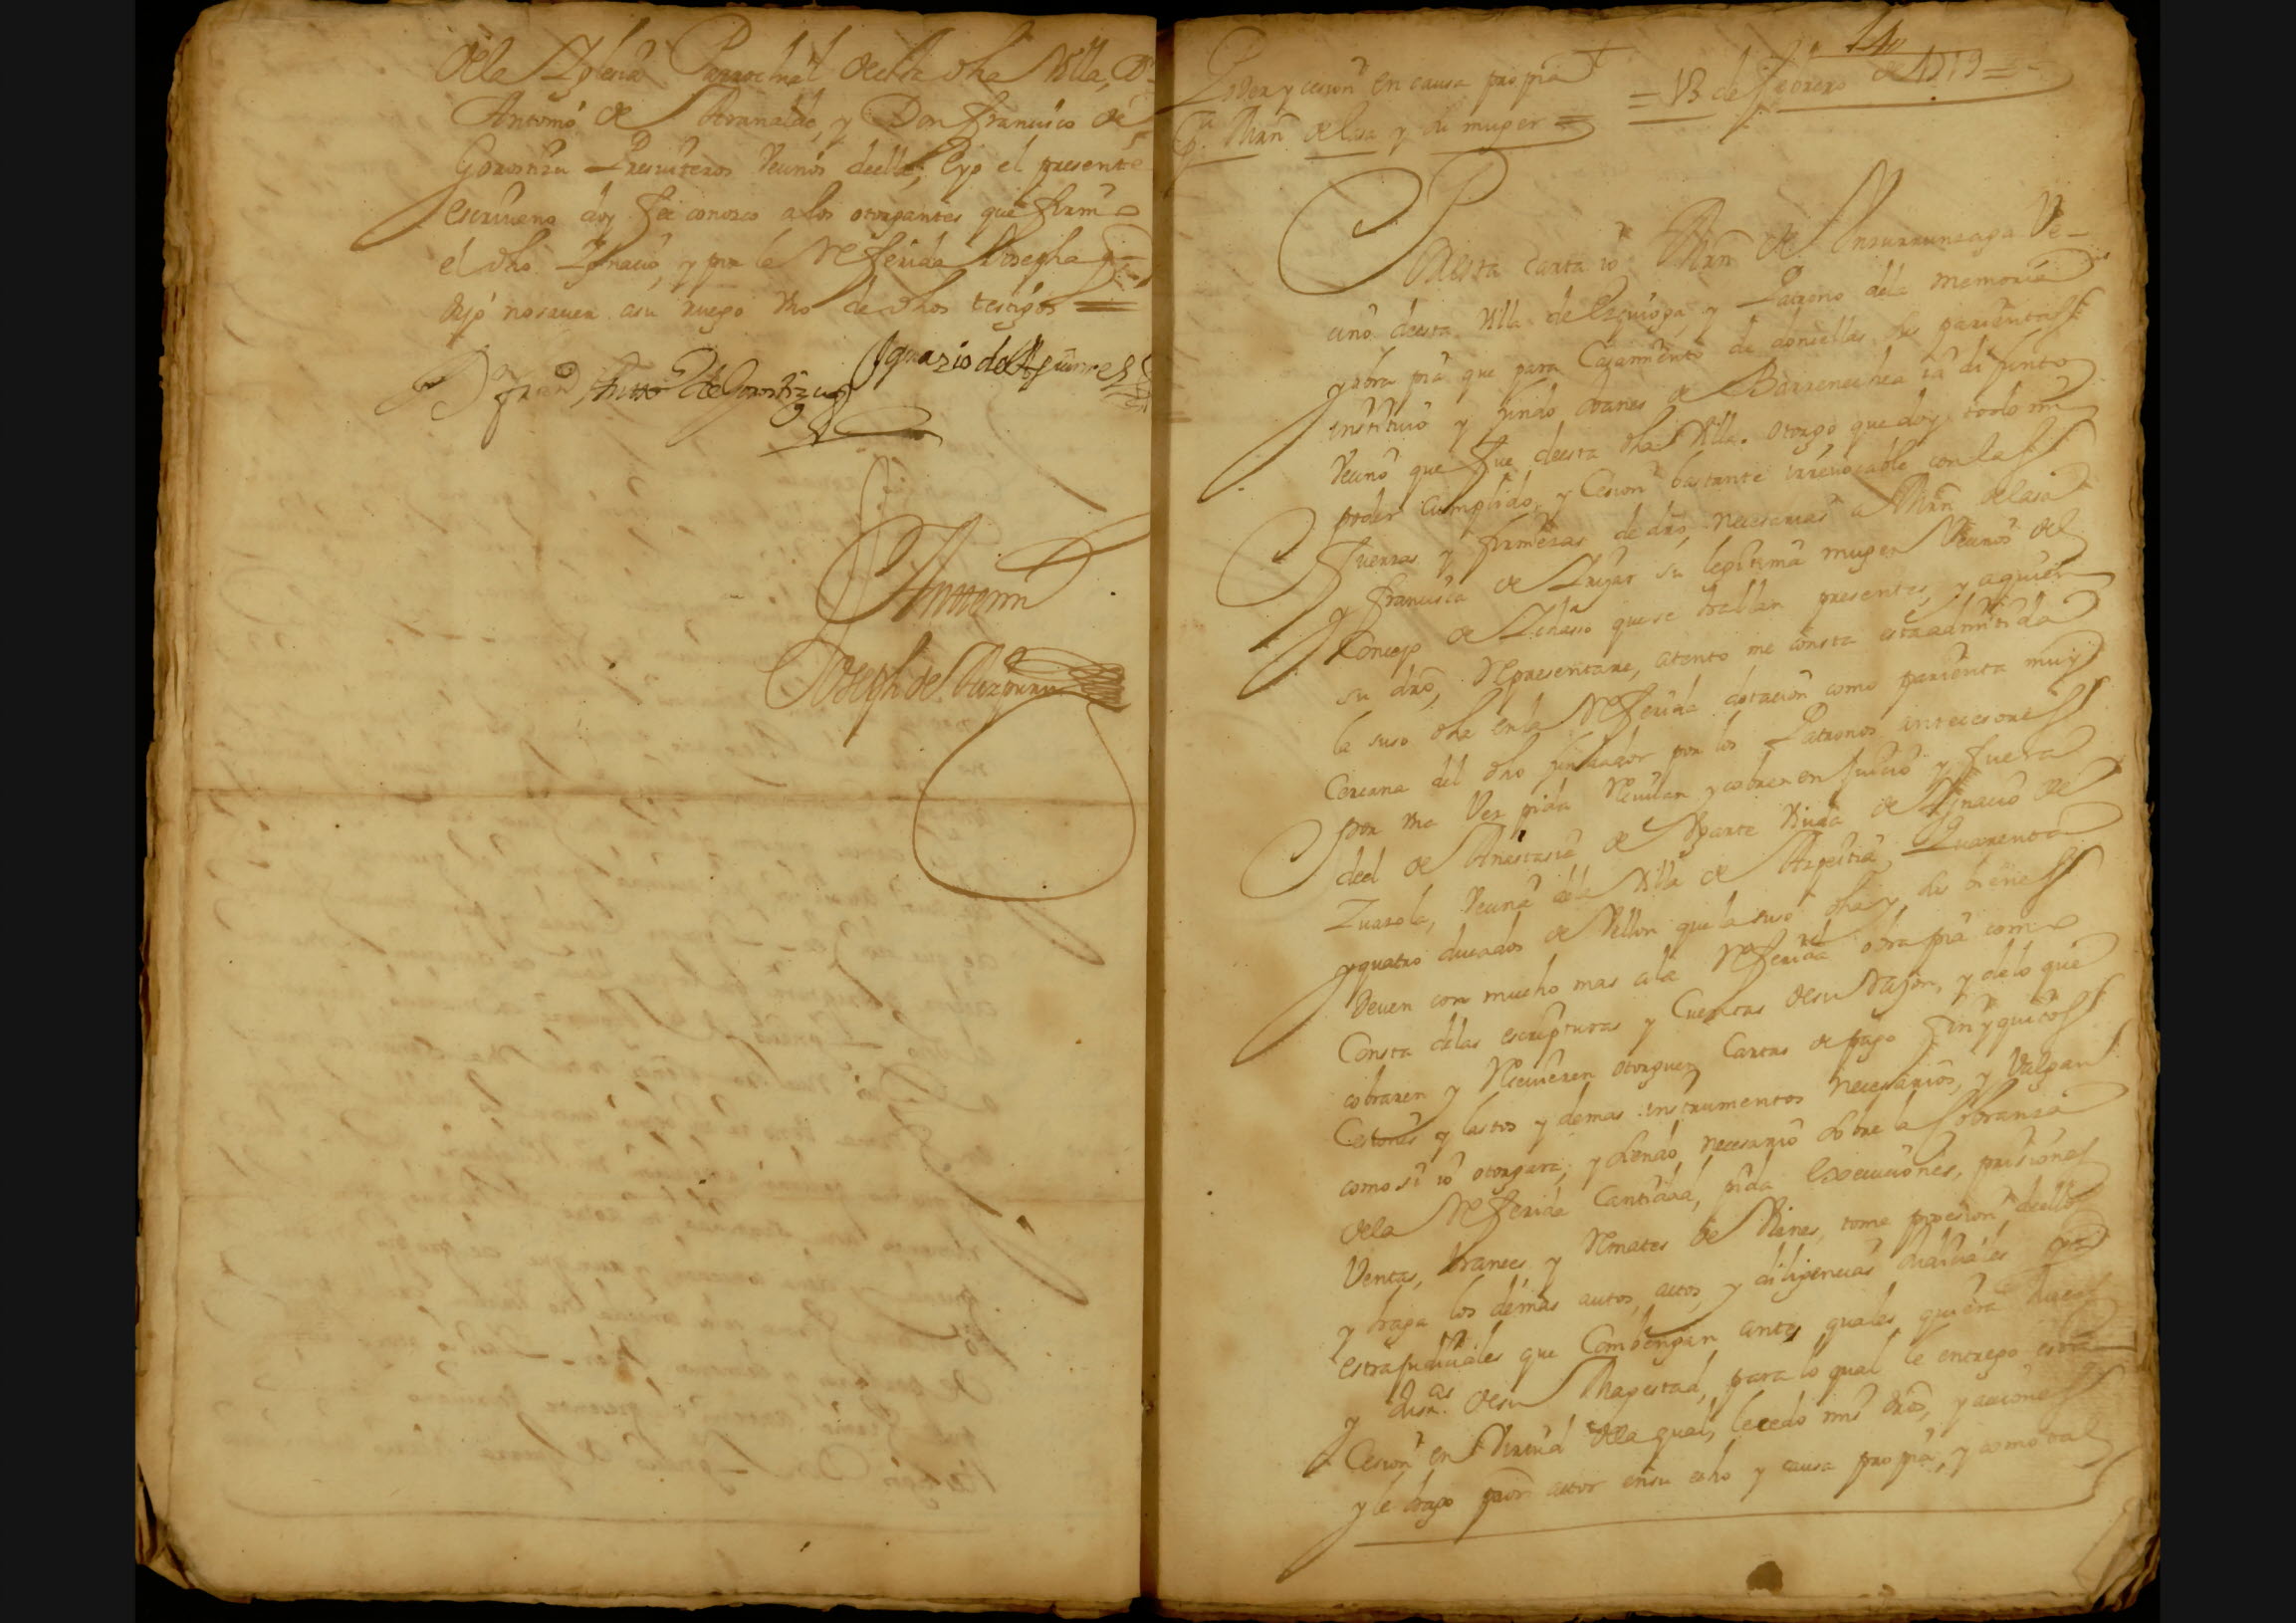 dela Iglesia Parrochial desta dha Villa, Dn
Antonio de Aranalde, y Don Francisco de
Gorostizu Presviteros Vecinos deella, Eyo el presente
escrivano doy fee conozco alos otorgantes que firmo
el dho Ignacio, y por la Referida Josepha que
dijo nosaver asu ruego Uno de dhos testigos =
Dn Fran.co de Gorostizu Ignazio de Aguirre
Antemi
Joseph de Aizpuru
140
Poder y cesion en causa propia
Pa Mrn de lasa y su muger =
= 13 de febrero de 1719 =
Por esta carta io Mrn de Insurrunzaga Ve-
cino desta Villa de Ezquioga, y Patrono dela memoria
y obra pia que para Casamiento de doncellas sus parientas
instituio y fundo Joanes de Barrenechea ia difunto
Vecino que fue desta dha Villa. otorgo que doy todo mi
poder Cumplido, y Cesion bastante irrevocable con las
fuerzas y firmezas de dro necesarias a Mrn de lasa
y francisca de su legitima muger Vecinos del
Concejo de Ichaso que se hallan presentes, y aquien
su dro Representare, atento me consta esta admitida
la suso dha en la Referida dotacion como parienta muy
Cercana del dho fundador por los Patronos antecesores
por Una Vez pida Reciban y cobren en Juicio y fuera
deel de Anastasia de Ugarte Viuda de Ignacio de
Zuazola, Vecina dela Villa de Azpeitia, Quarenta
y quatro ducados de Vellon que la suso dha y sus bienes
deven con mucho mas ala Referida obra pia como
Consta delas escripturas y Cuentas desu razon, y delo que
cobraren y Recivieren otorguen Cartas de pago fin y quitos
Cesiones y lastos y demas instrumentos necesarios, y Valgan
como si io otorgara, y siendo necesario sobre la Cobranza
dela Referida Cantidad, pida Execuciones, prisiones
Ventas, trances y Remates de Vienes, tome posesion deellos
y haga los demas autos, actos y diligencias Judiciales
estrajudiciales que Combengan antes quales quiera Jueces
y Jusas desu Magestad, para lo qual le entrego esta
Cesion en Virtud dela qual, le cedo mis dros, y acciones
y le hago procor actor ensu echo y causa propia, y como tal